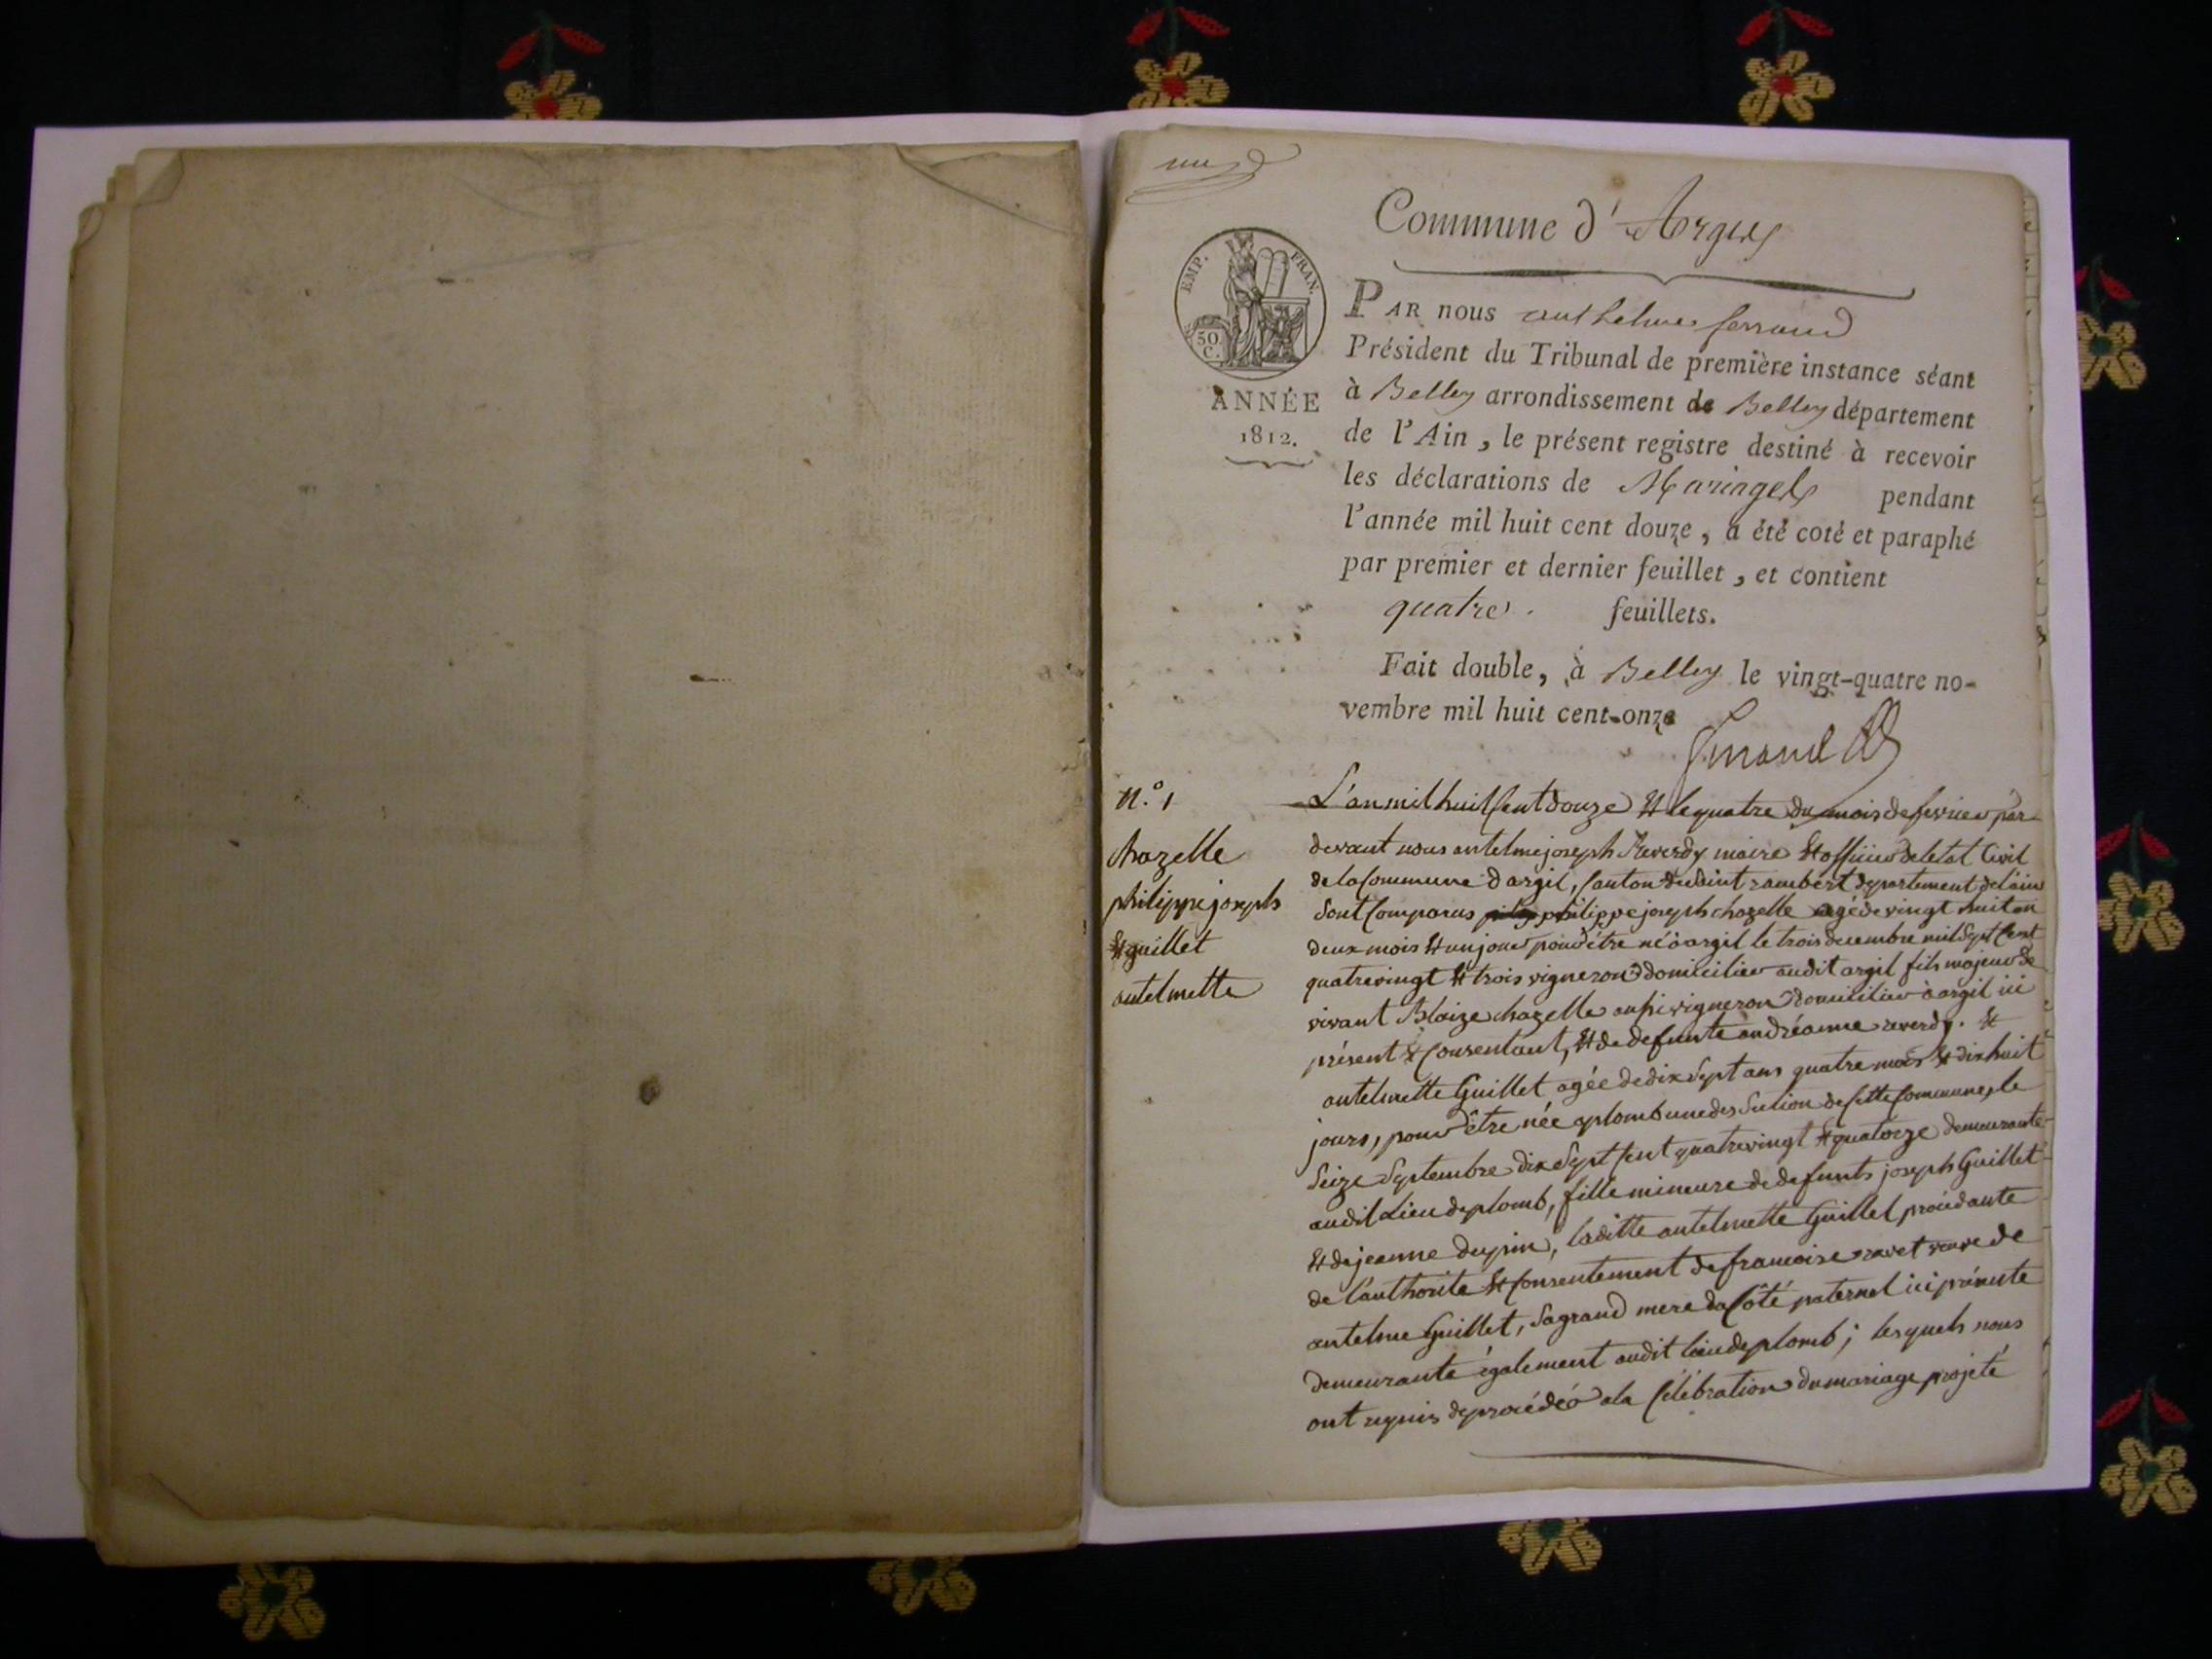 une
Commune d'Argis
EMP. FRAN.
50 C.
ANNÉE
1812.
PAR nous anthelme ferrand
Président du Tribunal de première instance séant
à Belley arrondissement de Belley département
de l'Ain, le présent registre destiné à recevoir
les déclarations de Mariages pendant
l'année mil huit cent douze, a été coté et paraphé
par premier et dernier feuillet, et contient
quatre feuillets.
Fait double, à Belley le vingt-quatre no-
vembre mil huit cent onze
ferrand
n.° 1
chazelle
philippe joseph
et guillet
antelmette
L'an mil huit cent douze et le quatre du mois de fevrier par
devant nous antelme joseph Reverdy maire et officier de letat Civil
de la Commune d argil, canton de Saint rambert departement de lain
Sont Comparus philippe joseph chazelle agé de vingt huit an
deux mois et un jour pour être né à argil le trois decembre mil Sept Cent
quatrevingt et trois vigneron domicilier audit argil fils majeur de
vivant Blaize chazelle aussi vigneron domicilier à argil ici
présent et Consentant, et de defunte andréanne reverdy. et
antelmette Guillet agée de dix Sept ans quatre mois et dix huit
jours, pour être née a plomb une des Section de cette Commune, le
Seize Septembre dix Sept Cent quatrevingt et quatorze demeurante
audit Lieu de plomb, fille mineure de defunts joseph Guillet
et de jeanne dupin, laditte antelmette Guillet procédante
de l'authorite et Consentement de francoise ravet veuve de
antelme Guillet, Sa grand mere du Côté paternel ici présente
demeurante également audit lieu de plomb; lesquels nous
ont requis de procédér a la Célébration du mariage projeté